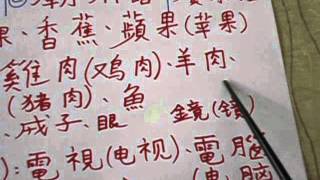 果、香蕉、蘋果(苹果)
雞肉(鸡肉)、羊肉、
(猪肉)、魚
、戒子、眼 鏡(镜)
):電視(电视)、電腦
(电脑